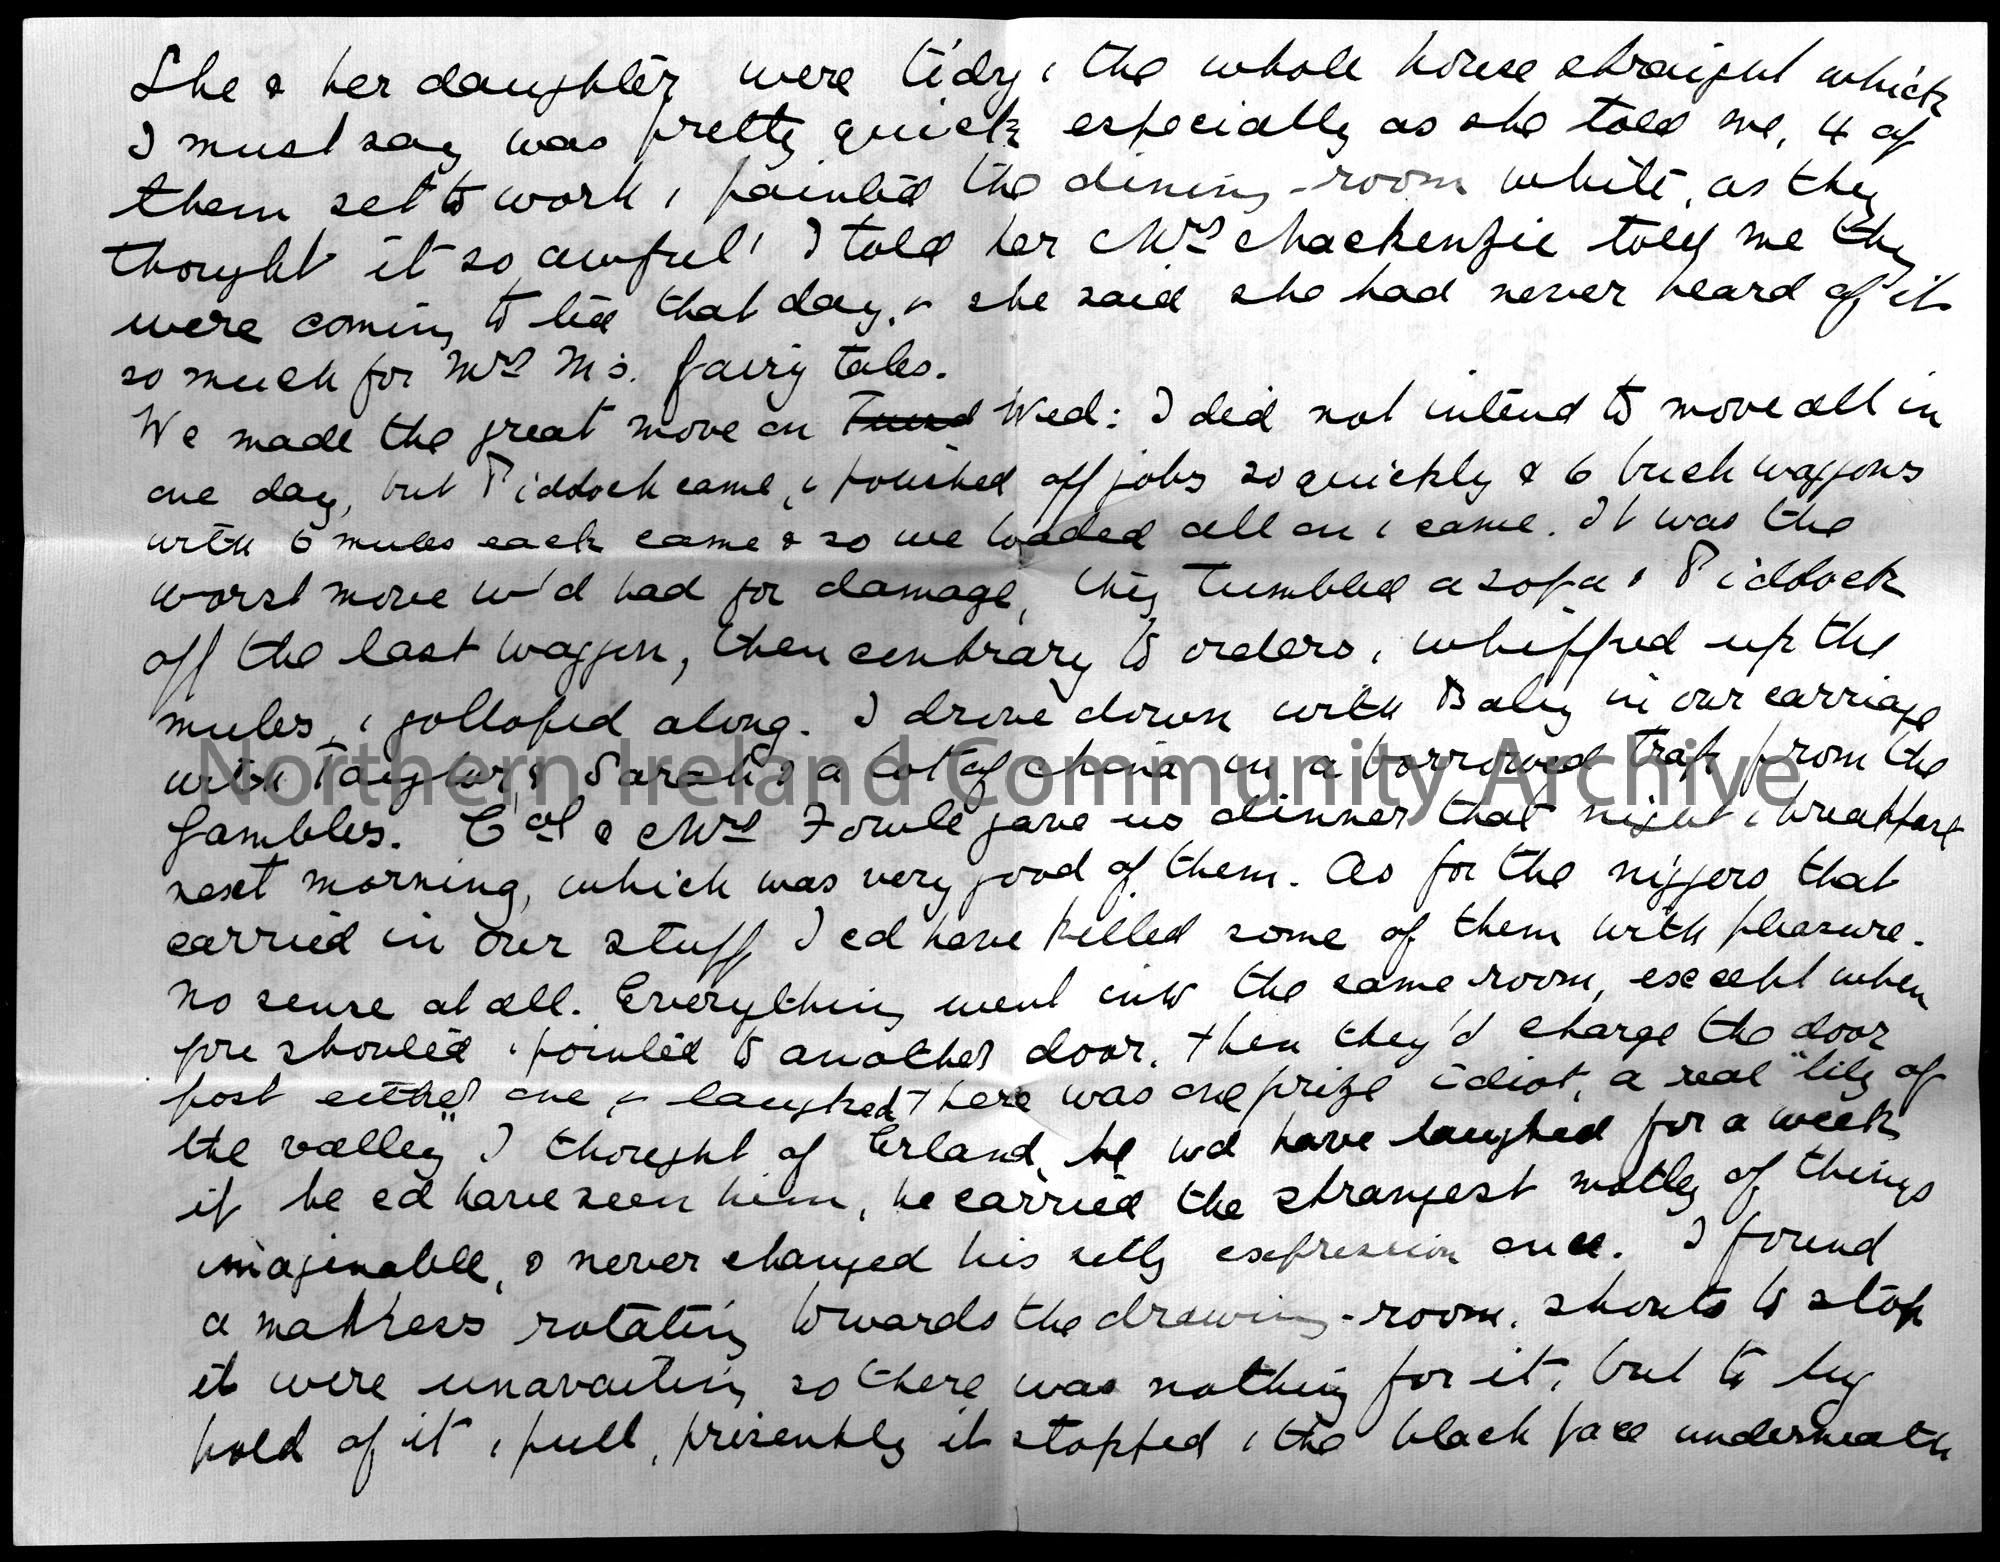 She & her daughter were tidy & the whole house straight which
I must say was pretty quick especially as she told me, 4 of
them set to work & painted the dining-room white, as they
thought it so awful! I told her Mrs Mackenzie told me they
were coming to tea that day, & she said she had never heard of it
so much for Mrs M's. fairy tales.
We made the great move on Wed: I did not intend to move all in
one day, but Piddock came, & polished off jobs so quickly & 6 buck waggons
with 6 mules each came & so we loaded all on & came. It was the
worst move w'd had for damage, they tumbled a sofa & Piddock
off the last waggon, then contrary to orders, & whipped up the
mules, & galloped along. I drove down with Baby in our carriage
with Taylor & Sarah & a lot of china in a borrowed trap from the
Gambles. Col & Mrs Fowle gave us dinner that night & breakfast
next morning, which was very good of them. As for the niggers that
carried in our stuff I cd have killed some of them with pleasure.
No sense at all. Everything went into the same room, except when
you shouted & pointed to another door, then they'd charge the door
post either one, & laughed there was one prize idiot, a real "lily of
the valley" I thought of Erland, he wd have laughed for a week
if he cd have seen him, he carried the strangest motley of things
imaginable, & never changed his silly expression once. I found
a mattress rotating towards the drawing-room. shouts to stop
it were unavailing so there was nothing for it, but to lay
hold of it & pull, presently it stopped & the black face underneath
Northern Ireland Community Archive